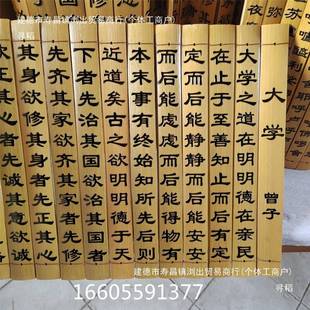 建德市寿昌镇浏出贸易商行(个体工商户)
寻稻
大学
曾子
大学之道在明明德在亲民
在止于至善知止而后有定
定而后能静静而后能安安
而后能虑虑而后能得物有
本末事有终始知所先后则
近道矣古之欲明明德于天
下者先治其国欲治其国者
先齐其家欲齐其家者先修
其身欲修其身者先正其心
正其心者先诚其意欲诚
建德市寿昌镇浏出贸易商行(个体工商户)
寻稻
16605591377